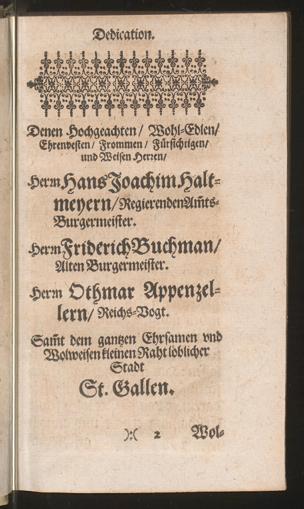 Dedication.
Denen Hochgeachten/ Wohl-Edlen/
Ehrenvesten/ Frommen/ Fürsichtigen/
und Weisen Herren/
Herrn Hans Joachim Halt-
meyern/ Regierenden Am̃ts-
Burgermeister.
Herrn Friderich Buchman/
Alten Burgermeister.
Herrn Othmar Appenzel-
lern/ Reichs-Vogt.
Sam̃t dem gantzen Ehrsamen vnd
Wolweisen kleinen Raht löblicher
Stadt
St. Gallen.
):( 2 Wol-